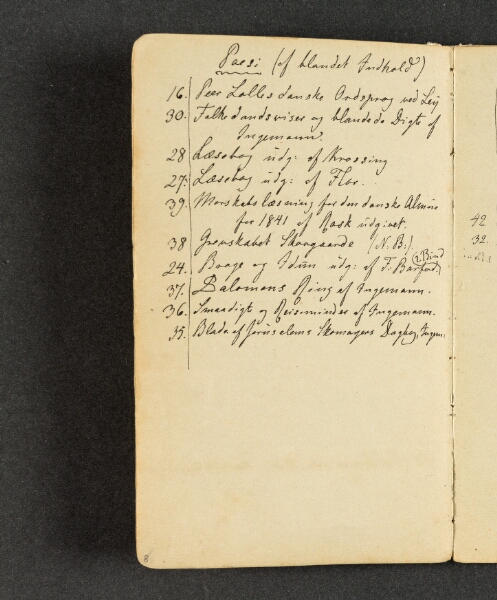 Poesi (af blandet Indhold)
16. Peer Lolles danske Ordsprog ved Leij
30. Folkedandsviser og blandede Digte af
Ingemann.
28 Læsebog udg: af Krossing
27: Læsebog udg: af Flor.
39. Morskabslæsning for den danske Almue
for 1841 af Rask udgivet.
38 Grevskabet Skovgaarde (N. B:)
24. Brage og Idun udg: af F: Barfod (2 Bind
37. Salomons Ring af Ingemann.
36. Smaadigte og Reiseminder af Ingemann.
35. Blade af Jerusalems Skomagers Dagbog, Ingem.
8
42
32.